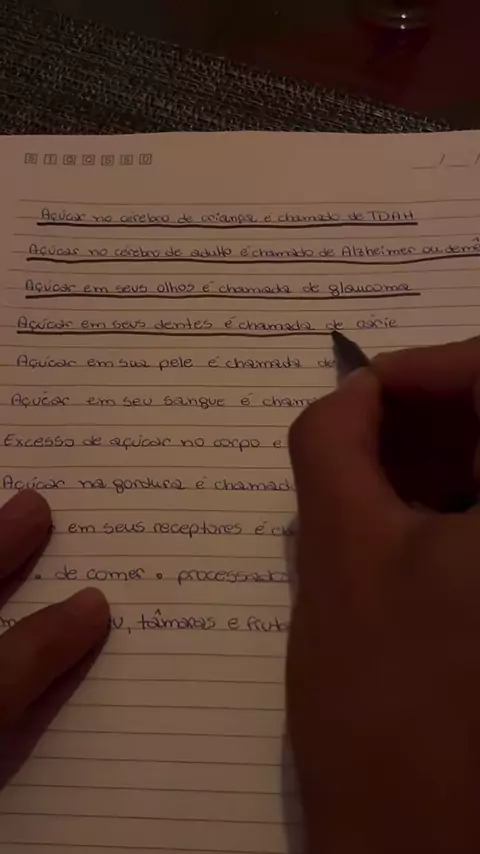 D S T Q Q S S
__/__/
Açúcar no cérebro de criança é chamado de TDAH
Açúcar no cérebro de adulto é chamado de Alzheimer ou demê
Açúcar em seus olhos é chamada de glaucoma
Açúcar em seus dentes é chamada de cárie
Açúcar em sua pele é chamada de
Açúcar em seu sangue é cham
Excesso de açúcar no corpo e
Açúcar na gordura é chamad
em seus receptores é c
de comer o processado
u, tâmaras e fruta